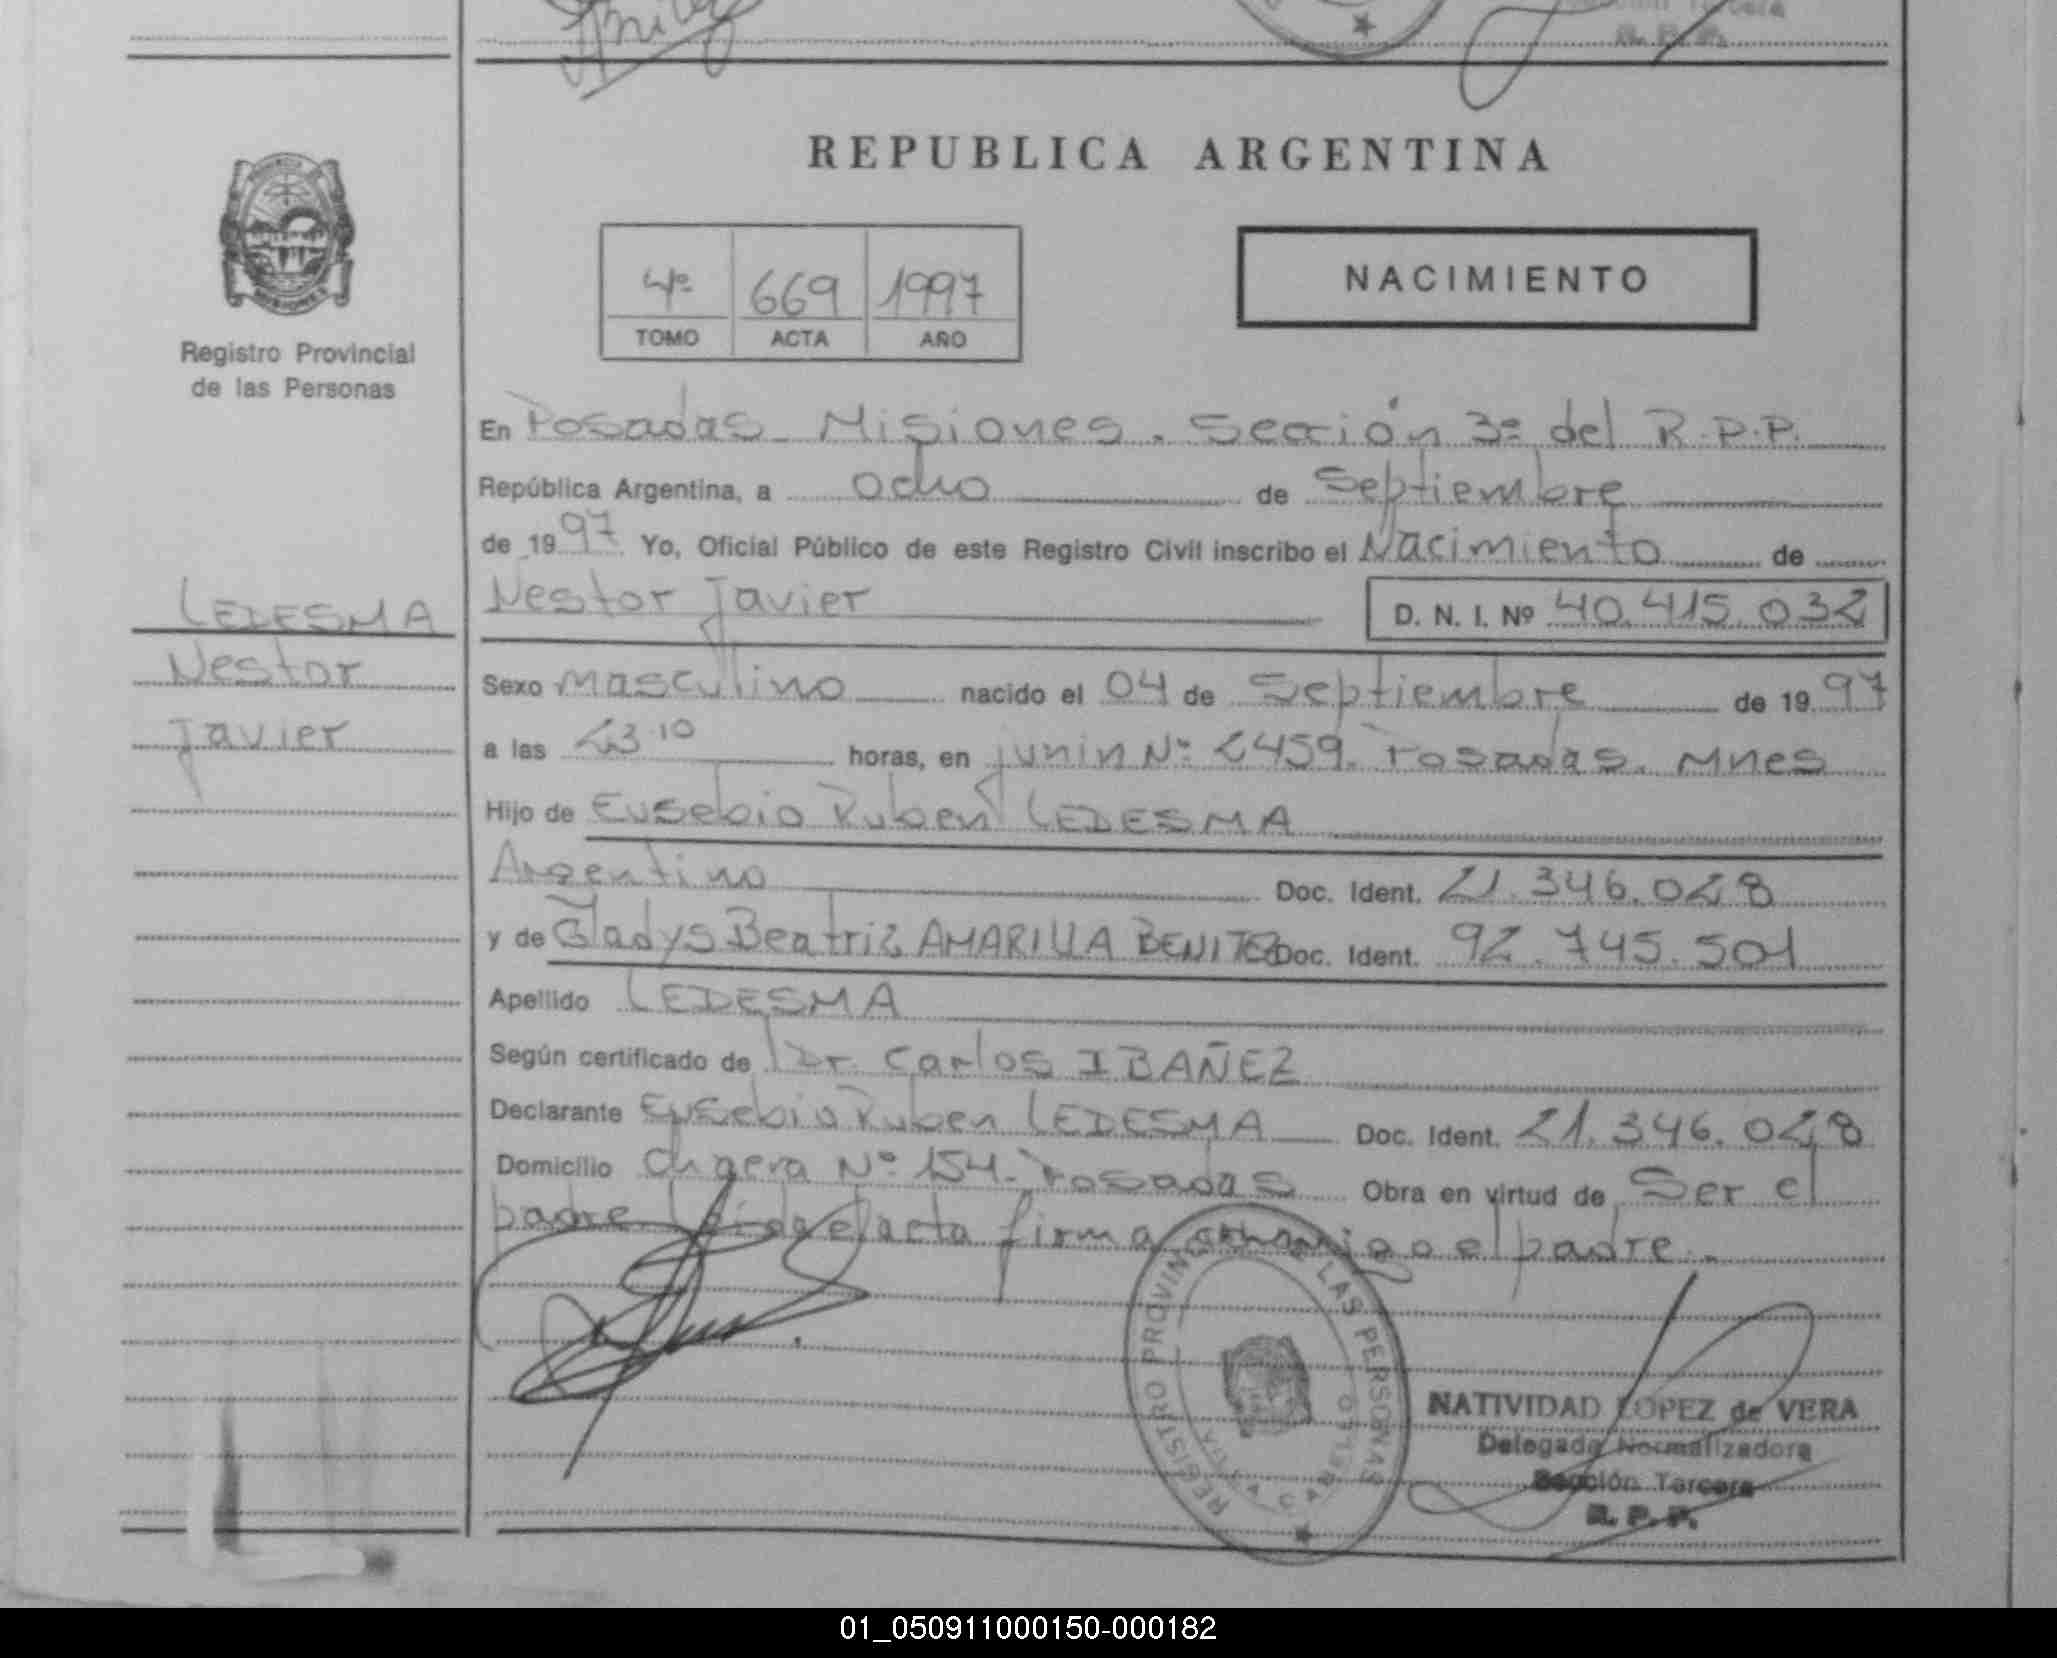 Sección Tercera
R. P. P.
REPUBLICA ARGENTINA
4º 669 1997
TOMO ACTA AÑO
NACIMIENTO
Registro Provincial
de las Personas
En Posadas - Misiones. Sección 3º del R.P.P.
República Argentina, a ocho de Septiembre
de 1997 Yo, Oficial Público de este Registro Civil inscribo el Nacimiento de
LEDESMA
Nestor
Javier
Nestor Javier D. N. I. Nº 40.415.032
Sexo Masculino nacido el 04 de Septiembre de 1997
a las 23.10 horas, en junin Nº 2459. Posadas. Mnes
Hijo de Eusebio Ruben LEDESMA
Argentino Doc. Ident. 21.346.028
y de Gladys Beatriz AMARILLA BENITEZ Doc. Ident. 92.745.501
Apellido LEDESMA
Según certificado de Dr. Carlos IBAÑEZ
Declarante Eusebio Ruben LEDESMA Doc. Ident. 21.346.028
Domicilio Chacra Nº 154. Posadas Obra en virtud de Ser el
padre. Leida el acta firma conmigo el padre.
REGISTRO PROVINCIAL DE LAS PERSONAS
NATIVIDAD LOPEZ de VERA
Delegada Normalizadora
Sección Tercera
R. P. P.
01_050911000150-000182